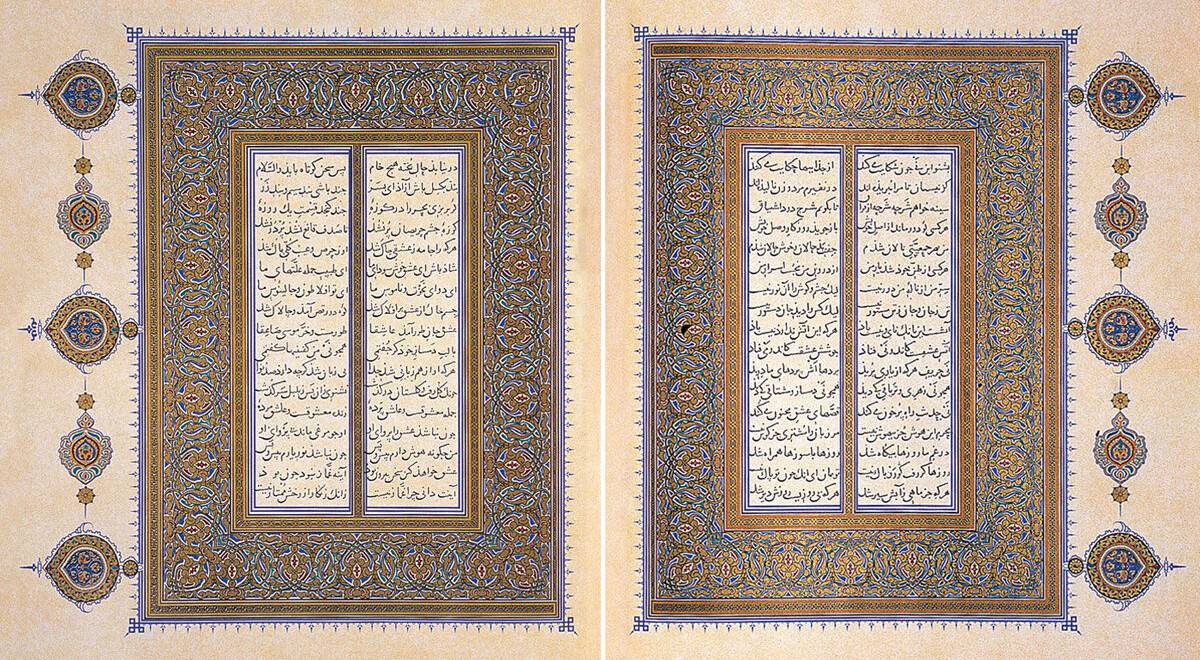 بشنو این نی چون شکایت می کند از جداییها حکایت می کند
کز نیستان تا مرا ببریده اند در نفیرم مرد و زن نالیده اند
سینه خواهم شرحه شرحه از فراق تا بگویم شرح درد اشتیاق
هر کسی کو دور ماند از اصل خویش باز جوید روزگار وصل خویش
من به هر جمعیتی نالان شدم جفت بدحالان و خوش حالان شدم
هر کسی از ظن خود شد یار من از درون من نجست اسرار من
سر من از ناله من دور نیست لیک چشم و گوش را آن نور نیست
تن ز جان و جان ز تن مستور نیست لیک کس را دید جان دستور نیست
آتشست این بانگ نای و نیست باد هر که این آتش ندارد نیست باد
آتش عشقست کاندر نی فتاد جوشش عشقست کاندر می فتاد
نی حریف هر که از یاری برید پرده هااش پرده های ما درید
همچو نی زهری و تریاقی که دید همچو نی دمساز و مشتاقی که دید
نی حدیث راه پر خون می کند قصه های عشق مجنون می کند
محرم این هوش جز بیهوش نیست مر زبان را مشتری جز گوش نیست
در غم ما روزها بیگاه شد روزها با سوزها همراه شد
روزها گر رفت گو رو باک نیست تو بمان ای آنک چون تو پاک نیست
هر که جز ماهی ز آبش سیر شد هر که بی روزیست روزش دیر شد
درنیابد حال پخته هیچ خام پس سخن کوتاه باید والسلام
بند بگسل باش آزاد ای پسر چند باشی بند سیم و بند زر
گر بریزی بحر را در کوزه چند گنجد قسمت یک روزه
کوزه چشم حریصان پر نشد تا صدف قانع نشد پر در نشد
هر که را جامه ز عشقی چاک شد او ز حرص و عیب کلی پاک شد
شاد باش ای عشق خوش سودای ما ای طبیب جمله علتهای ما
ای دوای نخوت و ناموس ما ای تو افلاطون و جالینوس ما
جسم خاک از عشق بر افلاک شد کوه در رقص آمد و چالاک شد
عشق جان طور آمد عاشقا طور مست و خر موسی صاعقا
با لب دمساز خود گر جفتمی همچو نی من گفتنیها گفتمی
هر که او از هم زبانی شد جدا بی زبان شد گرچه دارد صد نوا
چونک گل رفت و گلستان درگذشت نشنوی زان پس ز بلبل سرگذشت
جمله معشوقست و عاشق پرده زنده معشوقست و عاشق مرده
چون نباشد عشق را پروای او او چو مرغی ماند بی پر وای او
من چگونه هوش دارم پیش و پس چون نباشد نور یارم پیش و پس
عشق خواهد کین سخن بیرون بود آینه غماز نبود چون بود
آینت دانی چرا غماز نیست زانک زنگار از رخش ممتاز نیست